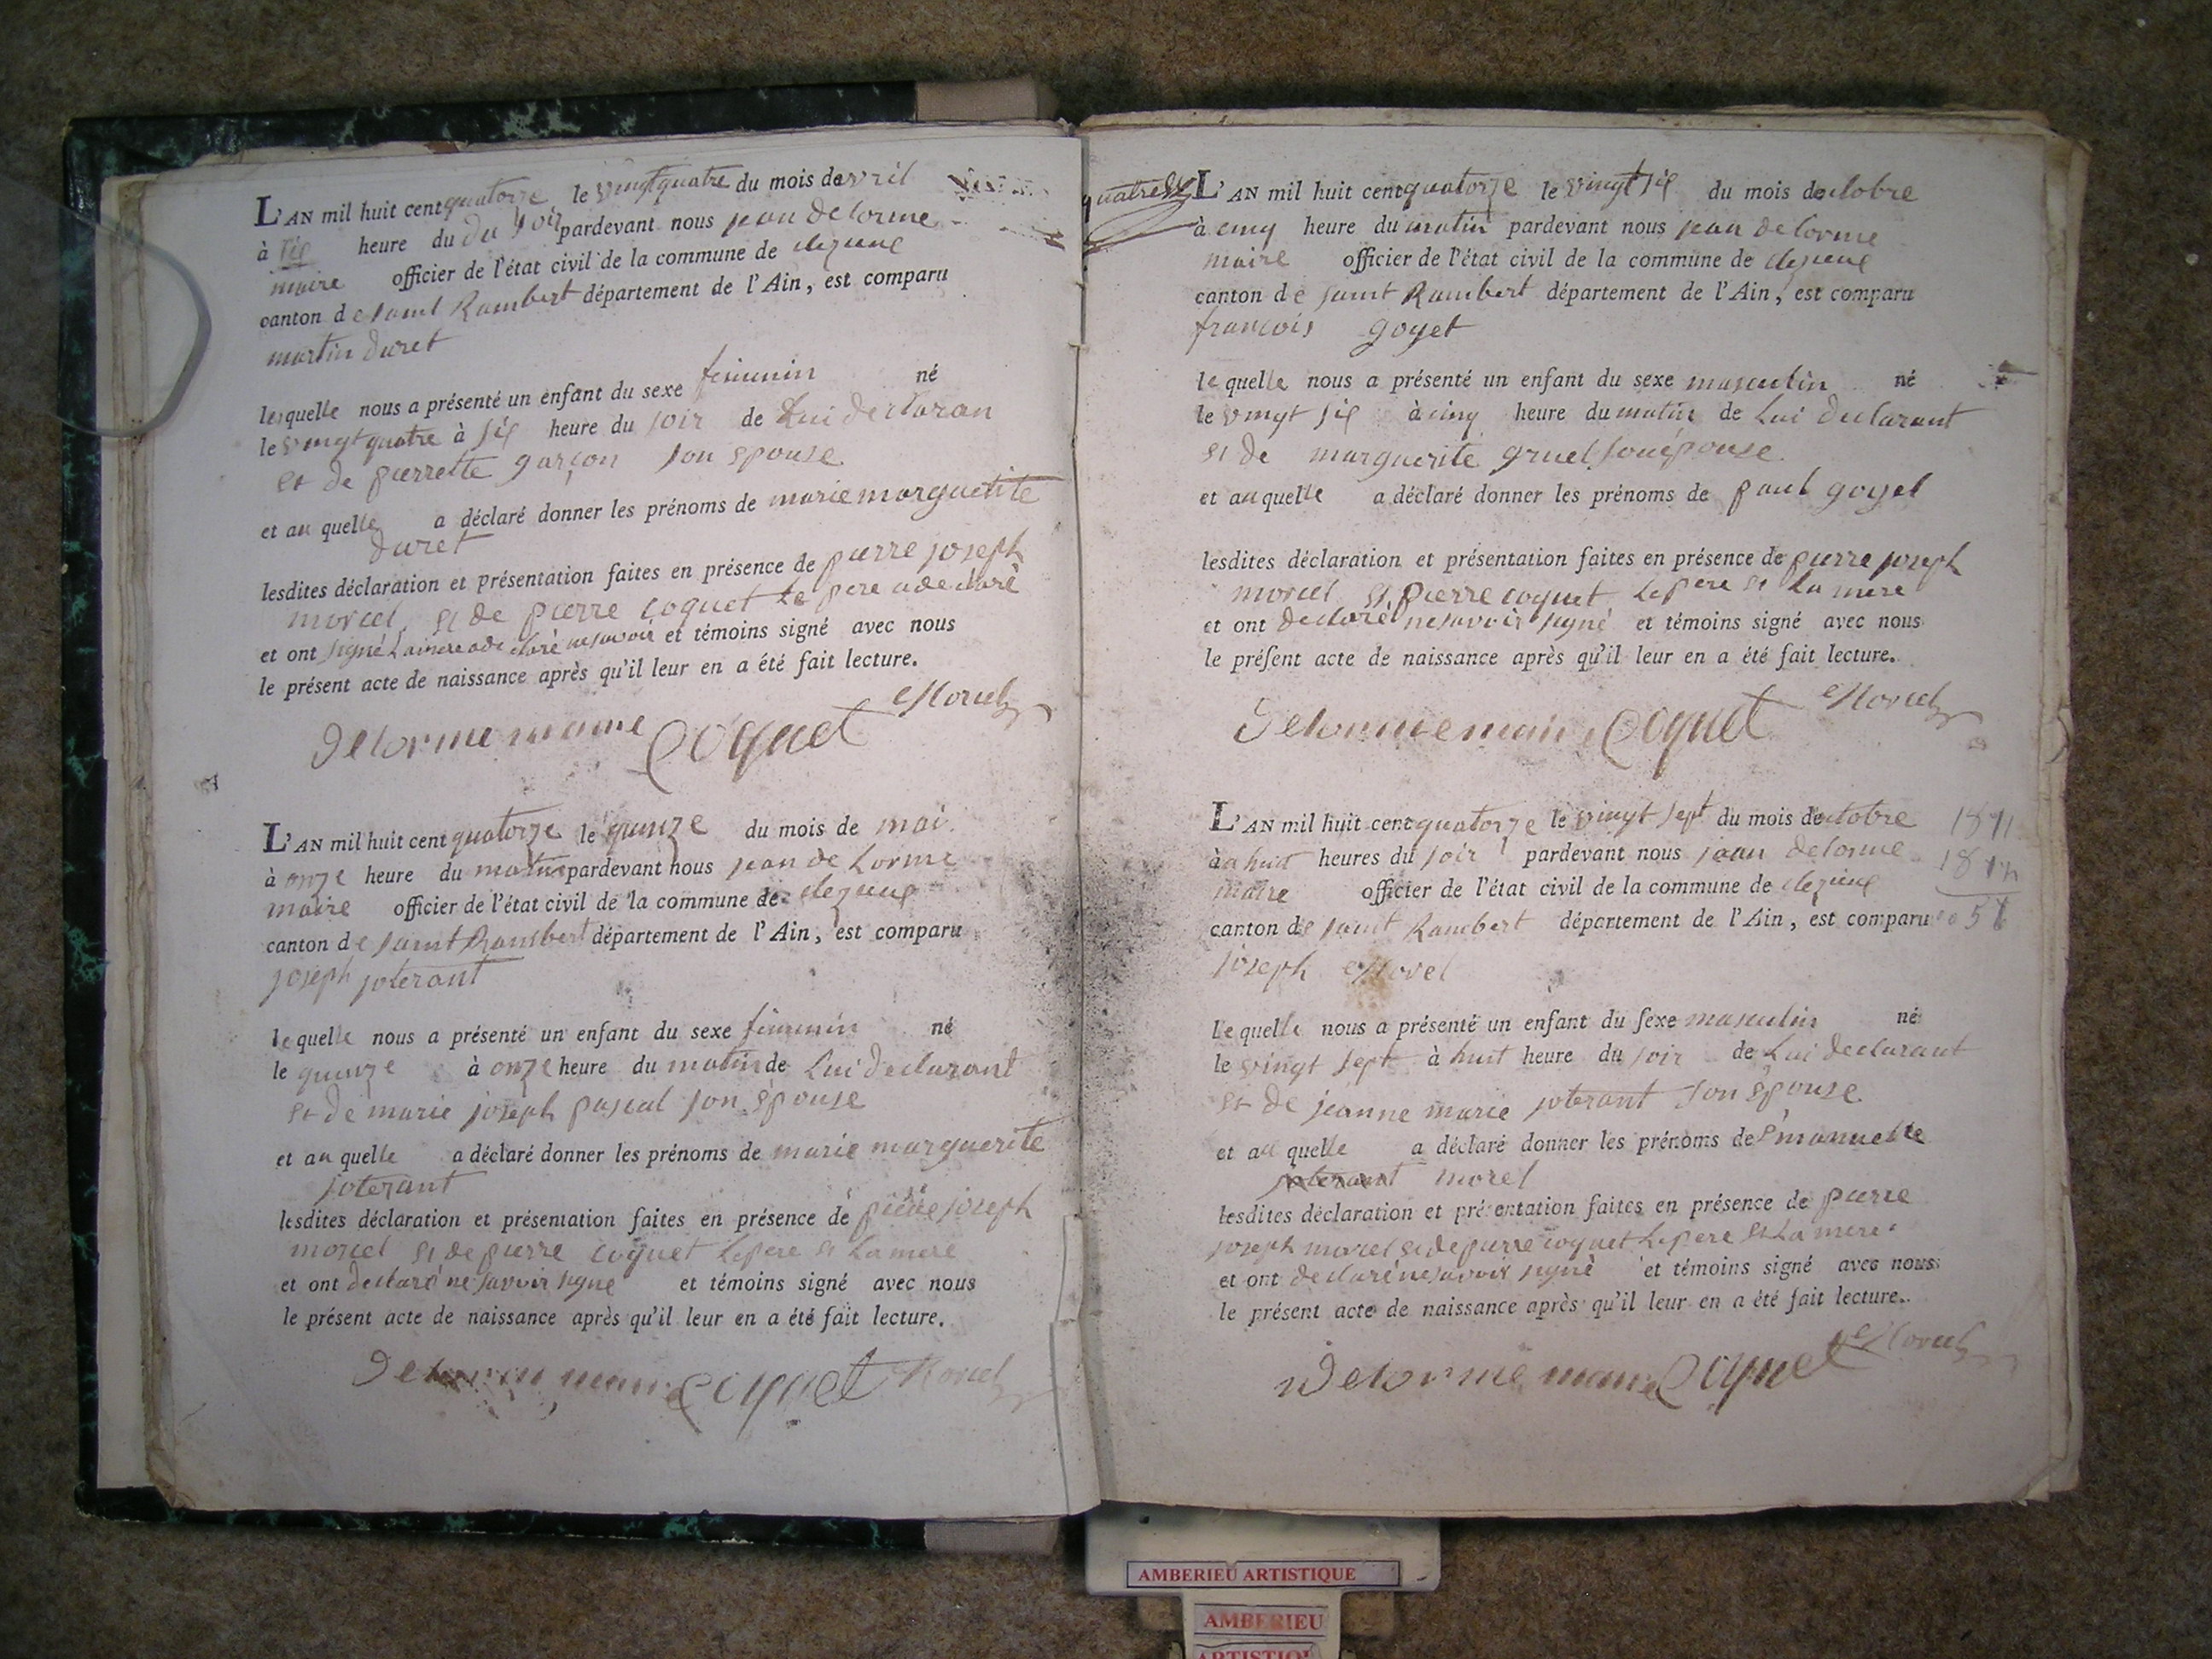 L'AN mil huit cent quatorze le vingt quatre du mois davril
à six heure du du soir pardevant nous jean delorme
maire officier de l'état civil de la commune de clezieux
canton de saint Rambert département de l'Ain, est comparu
martin duret
lequelle nous a présenté un enfant du sexe feminin né
le vingt quatre à six heure du soir de Lui declaran
et de pierrette garçon son epouse
et au quelle a déclaré donner les prénoms de marie marguerite
duret
lesdites déclaration et présentation faites en présence de pierre joseph
morcel et de pierre coquet Le pere a declaré
et ont signé La mere a declaré ne savoir et témoins signé avec nous
le présent acte de naissance après qu'il leur en a été fait lecture.
Morcel
Delorme maire Coquet
L'AN mil huit cent quatorze le quinze du mois de mai
à onze heure du matin pardevant nous jean de Lorme
maire officier de l'état civil de la commune de clezieux
canton de saint Rambert département de l'Ain, est comparu
joseph joterant
lequelle nous a présenté un enfant du sexe feminin né
le quinze à onze heure du matin de Lui declarant
et de marie joseph pascal son épouse
et au quelle a déclaré donner les prénoms de marie marguerite
joterant
lesdites déclaration et présentation faites en présence de pierre joseph
morcel et de pierre coquet Le pere et La mere
et ont declaré ne savoir signé et témoins signé avec nous
le présent acte de naissance après qu'il leur en a été fait lecture.
Delorme maire Coquet Morcel
L'AN mil huit cent quatorze le vingt six du mois doctobre
à cinq heure du matin pardevant nous jean delorme
maire officier de l'état civil de la commune de clezieux
canton de saint Rambert département de l'Ain, est comparu
françois goyet
lequelle nous a présenté un enfant du sexe masculin né
le vingt six à cinq heure du matin de Lui declarant
et de marguerite gruel son épouse
et au quelle a déclaré donner les prénoms de paul goyet
lesdites déclaration et présentation faites en présence de pierre joseph
morcel et pierre coquet Le pere et La mere
et ont declaré ne savoir signé et témoins signé avec nous
le présent acte de naissance après qu'il leur en a été fait lecture.
Morcel
Delorme maire Coquet
L'AN mil huit cent quatorze le vingt sept du mois doctobre 1871
à huit heures du soir pardevant nous jean delorme 1814
maire officier de l'état civil de la commune de clezieux
canton de saint Rambert département de l'Ain, est comparu
joseph Morel
Le quelle nous a présenté un enfant du sexe masculin né
le vingt sept à huit heure du soir de Lui declarant
et de jeanne marie joterant son épouse
et au quelle a déclaré donner les prénoms de Emanuelle
joterant morel
lesdites déclaration et présentation faites en présence de pierre
joseph morcel et de pierre coquet Le pere et La mere
et ont declaré ne savoir signé et témoins signé avec nous
le présent acte de naissance après qu'il leur en a été fait lecture.
Morcel
Delorme maire Coquet
AMBERIEU ARTISTIQUE
AMBERIEU
ARTISTIQUE